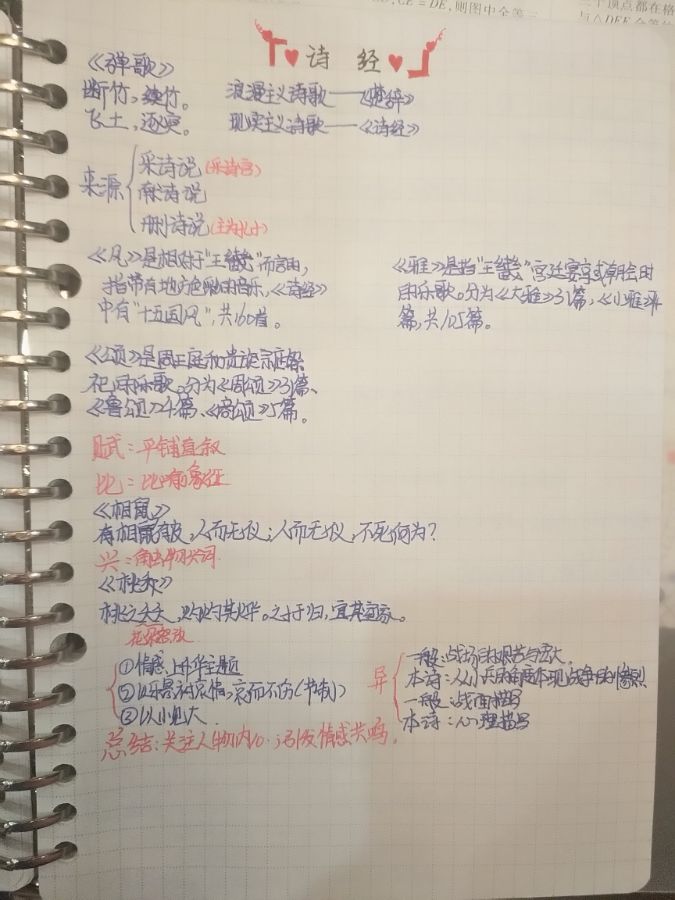 CE=DE,则图中全等三
三个顶点都在格
与△DEF全等的
诗 经
《弹歌》
断竹,续竹。
飞土,逐宍。
浪漫主义诗歌——《楚辞》
现实主义诗歌——《诗经》
来源
采诗说(采诗官)
献诗说
删诗说(主为孔小)
《风》是相对于"王畿"而言的,
指带有地方色彩的音乐,《诗经》
中有"十五国风",共160首。
《雅》是指"王畿"宫廷宴享或朝会时
的乐歌。分为《大雅》31篇,《小雅》74
篇,共105篇。
《颂》是周王庭和贵族宗庙祭
祀的乐歌。分为《周颂》31篇、
《鲁颂》4篇、《商颂》5篇。
赋:平铺直叙
比:比喻象征
《相鼠》
有相鼠有皮,人而无仪;人而无仪,不死何为?
兴:触物兴词
《桃夭》
桃之夭夭,灼灼其华。之子于归,宜其室家。
花朵怒放
①情感,升华主题
②以乐景衬哀情,哀而不伤(节制)
③以小见大.
异
一般:战场艰苦与宏大.
本诗:从小兵的角度体现战争的惨烈
一般:战面描写
本诗:心理描写
总结:关注人物内心,引发情感共鸣.